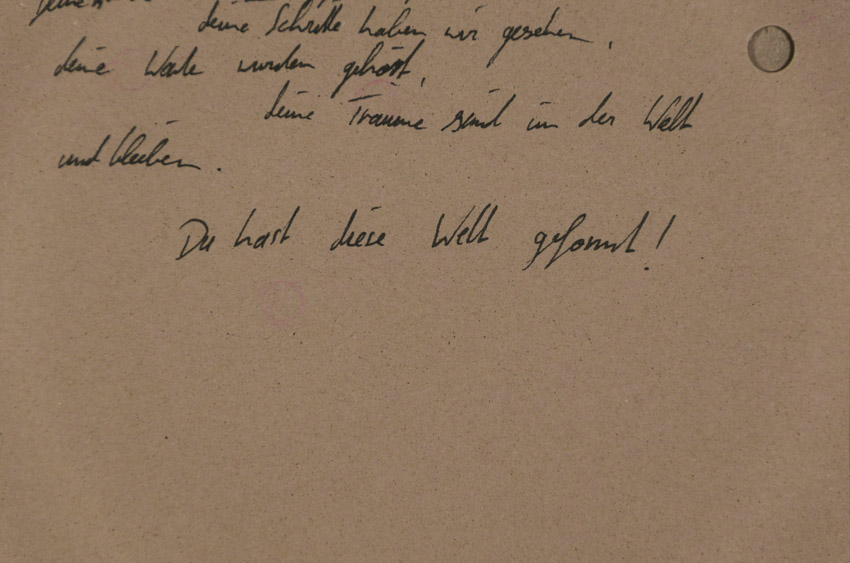 deine Schritte haben wir gesehen,
deine Worte wurden gehört,
deine Träume sind in der Welt
und bleiben.
Du hast diese Welt geformt!